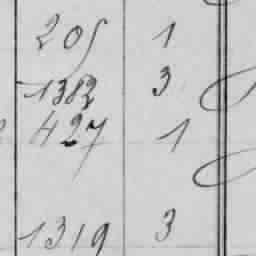 205 1
1382 3
427 1
1319 3